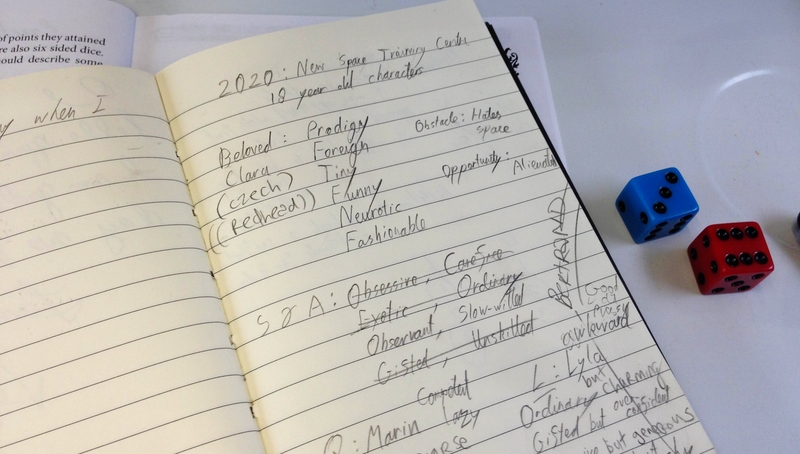 of points they attained
re also six sided dice.
ould describe some
y when I
2020: New Space Training Centre
18 year old characters
Beloved: Prodigy
Clara Foreign
(czech) Tiny
((Redhead)) Funny
Neurotic
Fashionable
Obstacle: Hates
space
Opportunity: Aliendar
S & A: Obsessive, Carefree
Exotic, Ordinary
Observant, Slow-witted
Gifted, Unskilled
BERTRAND
Good
awkward
L: Lyla
but
Ordinary Charming
Gifted but over confident
but generous
lazy
Marin